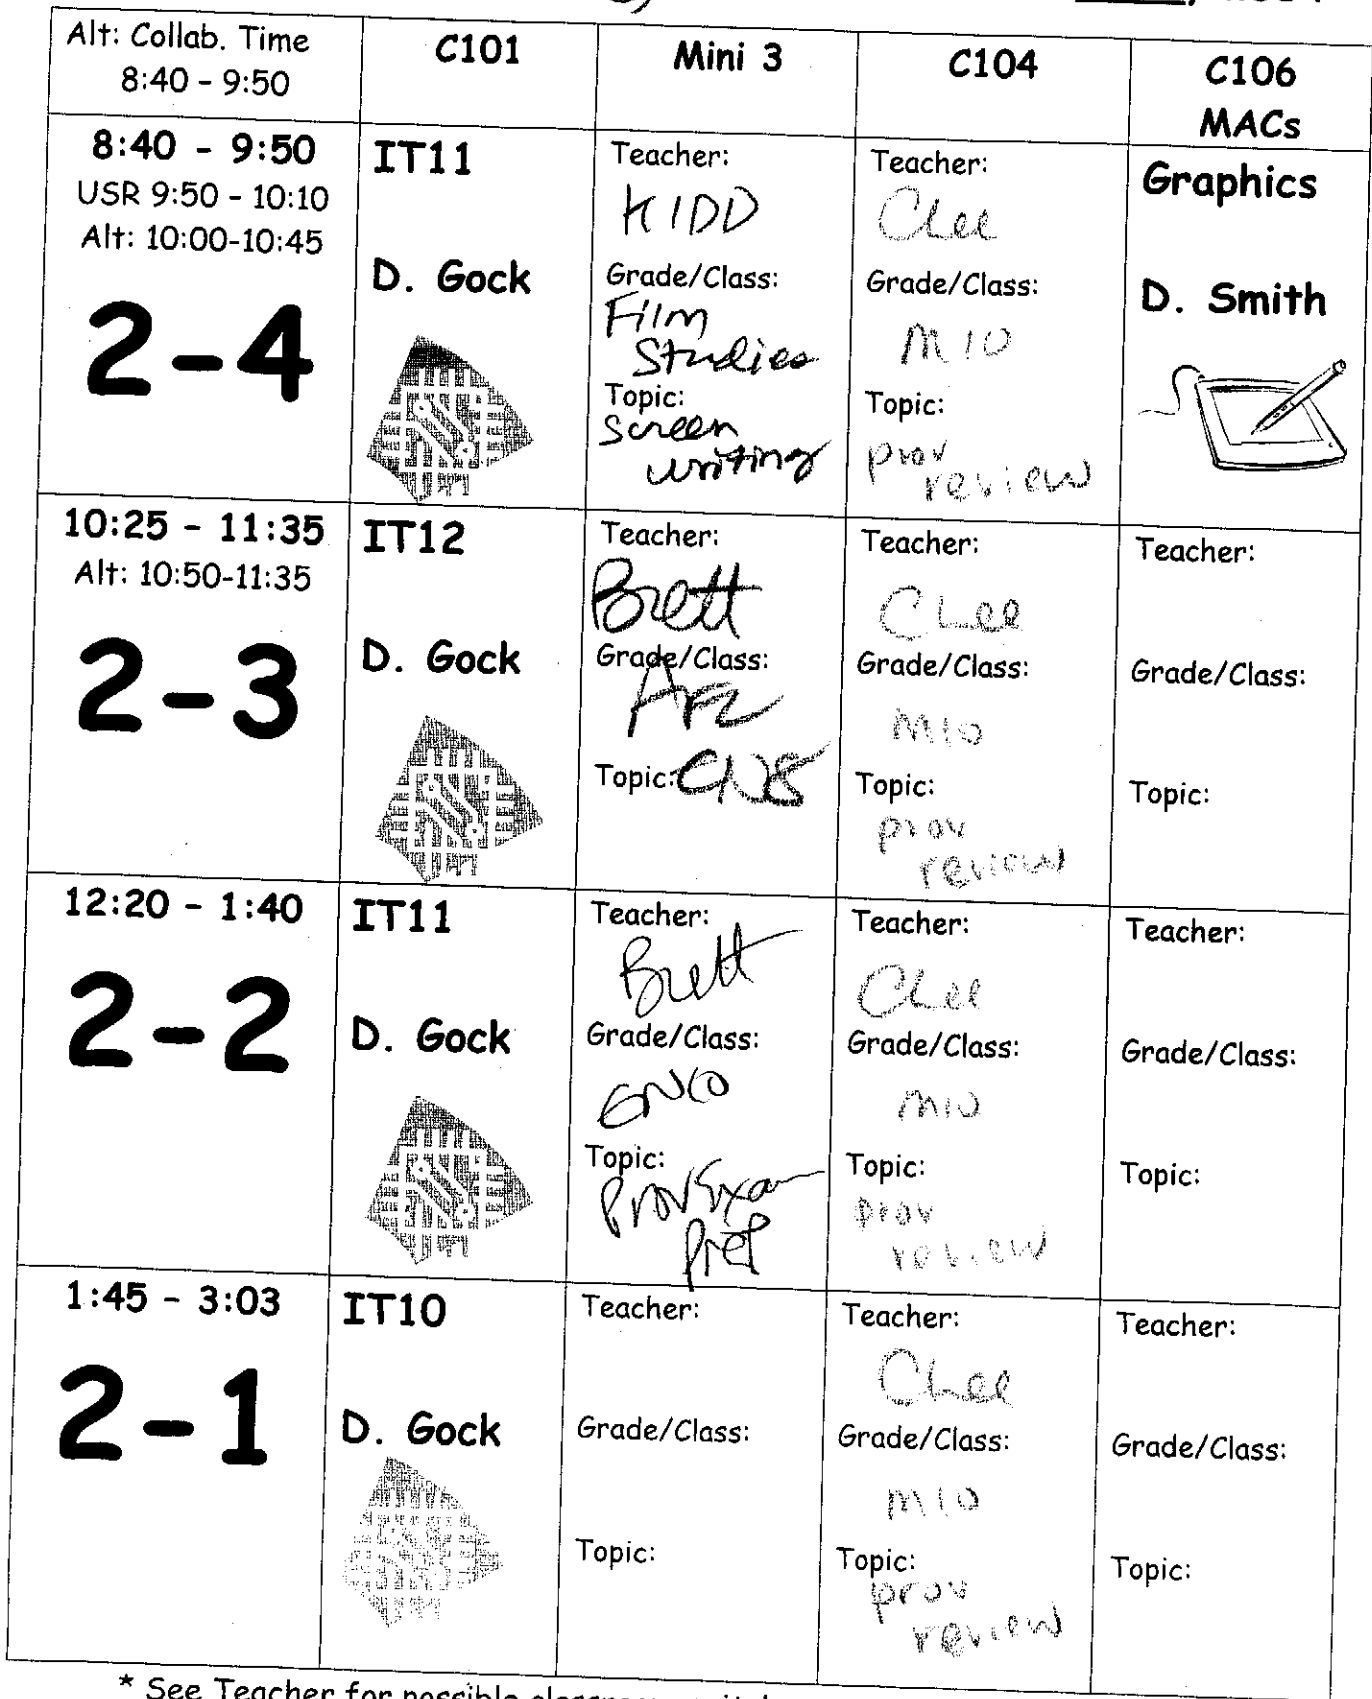 Alt: Collab. Time
8:40 - 9:50
C101
Mini 3
C104
C106
MACs
8:40 - 9:50
USR 9:50 - 10:10
Alt: 10:00-10:45
2-4
IT11
D. Gock
Teacher:
KIDD
Grade/Class:
Film
Studies
Topic:
Screen
writing
Teacher:
Chee
Grade/Class:
M10
Topic:
prov
review
Graphics
D. Smith
10:25 - 11:35
Alt: 10:50-11:35
2-3
IT12
D. Gock
Teacher:
Brett
Grade/Class:
Topic:
Teacher:
CLee
Grade/Class:
M10
Topic:
prov
review
Teacher:
Grade/Class:
Topic:
12:20 - 1:40
2-2
IT11
D. Gock
Teacher:
Brett
Grade/Class:
Topic:
Prov Exam
Prep
Teacher:
Chee
Grade/Class:
M10
Topic:
prov
review
Teacher:
Grade/Class:
Topic:
1:45 - 3:03
2-1
IT10
D. Gock
Teacher:
Grade/Class:
Topic:
Teacher:
Chee
Grade/Class:
M10
Topic:
prov
review
Teacher:
Grade/Class:
Topic:
* See Teacher for possible